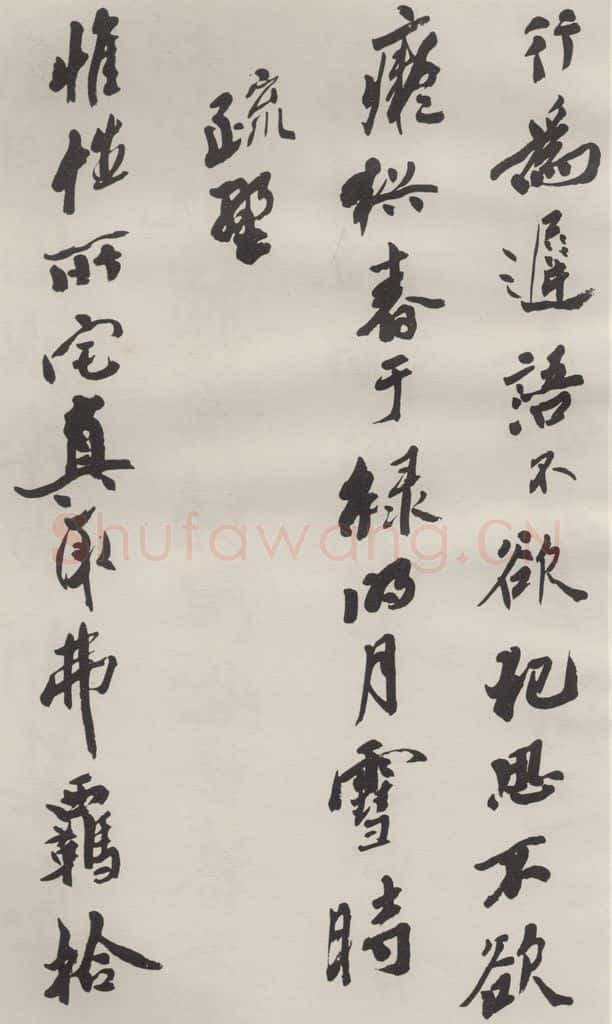 行為遲語不欲犯思不欲
癡猶春于綠明月雪時
疏野
惟性所宅真取弗羈拾
Shufawang.CN